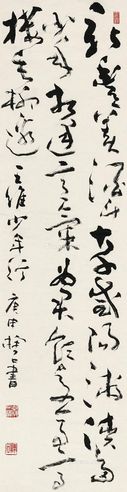 新豐美酒斗十千咸陽游俠多
少年相逢意氣為君飲繫馬高
樓垂柳邊 王維少年行 庚申 書